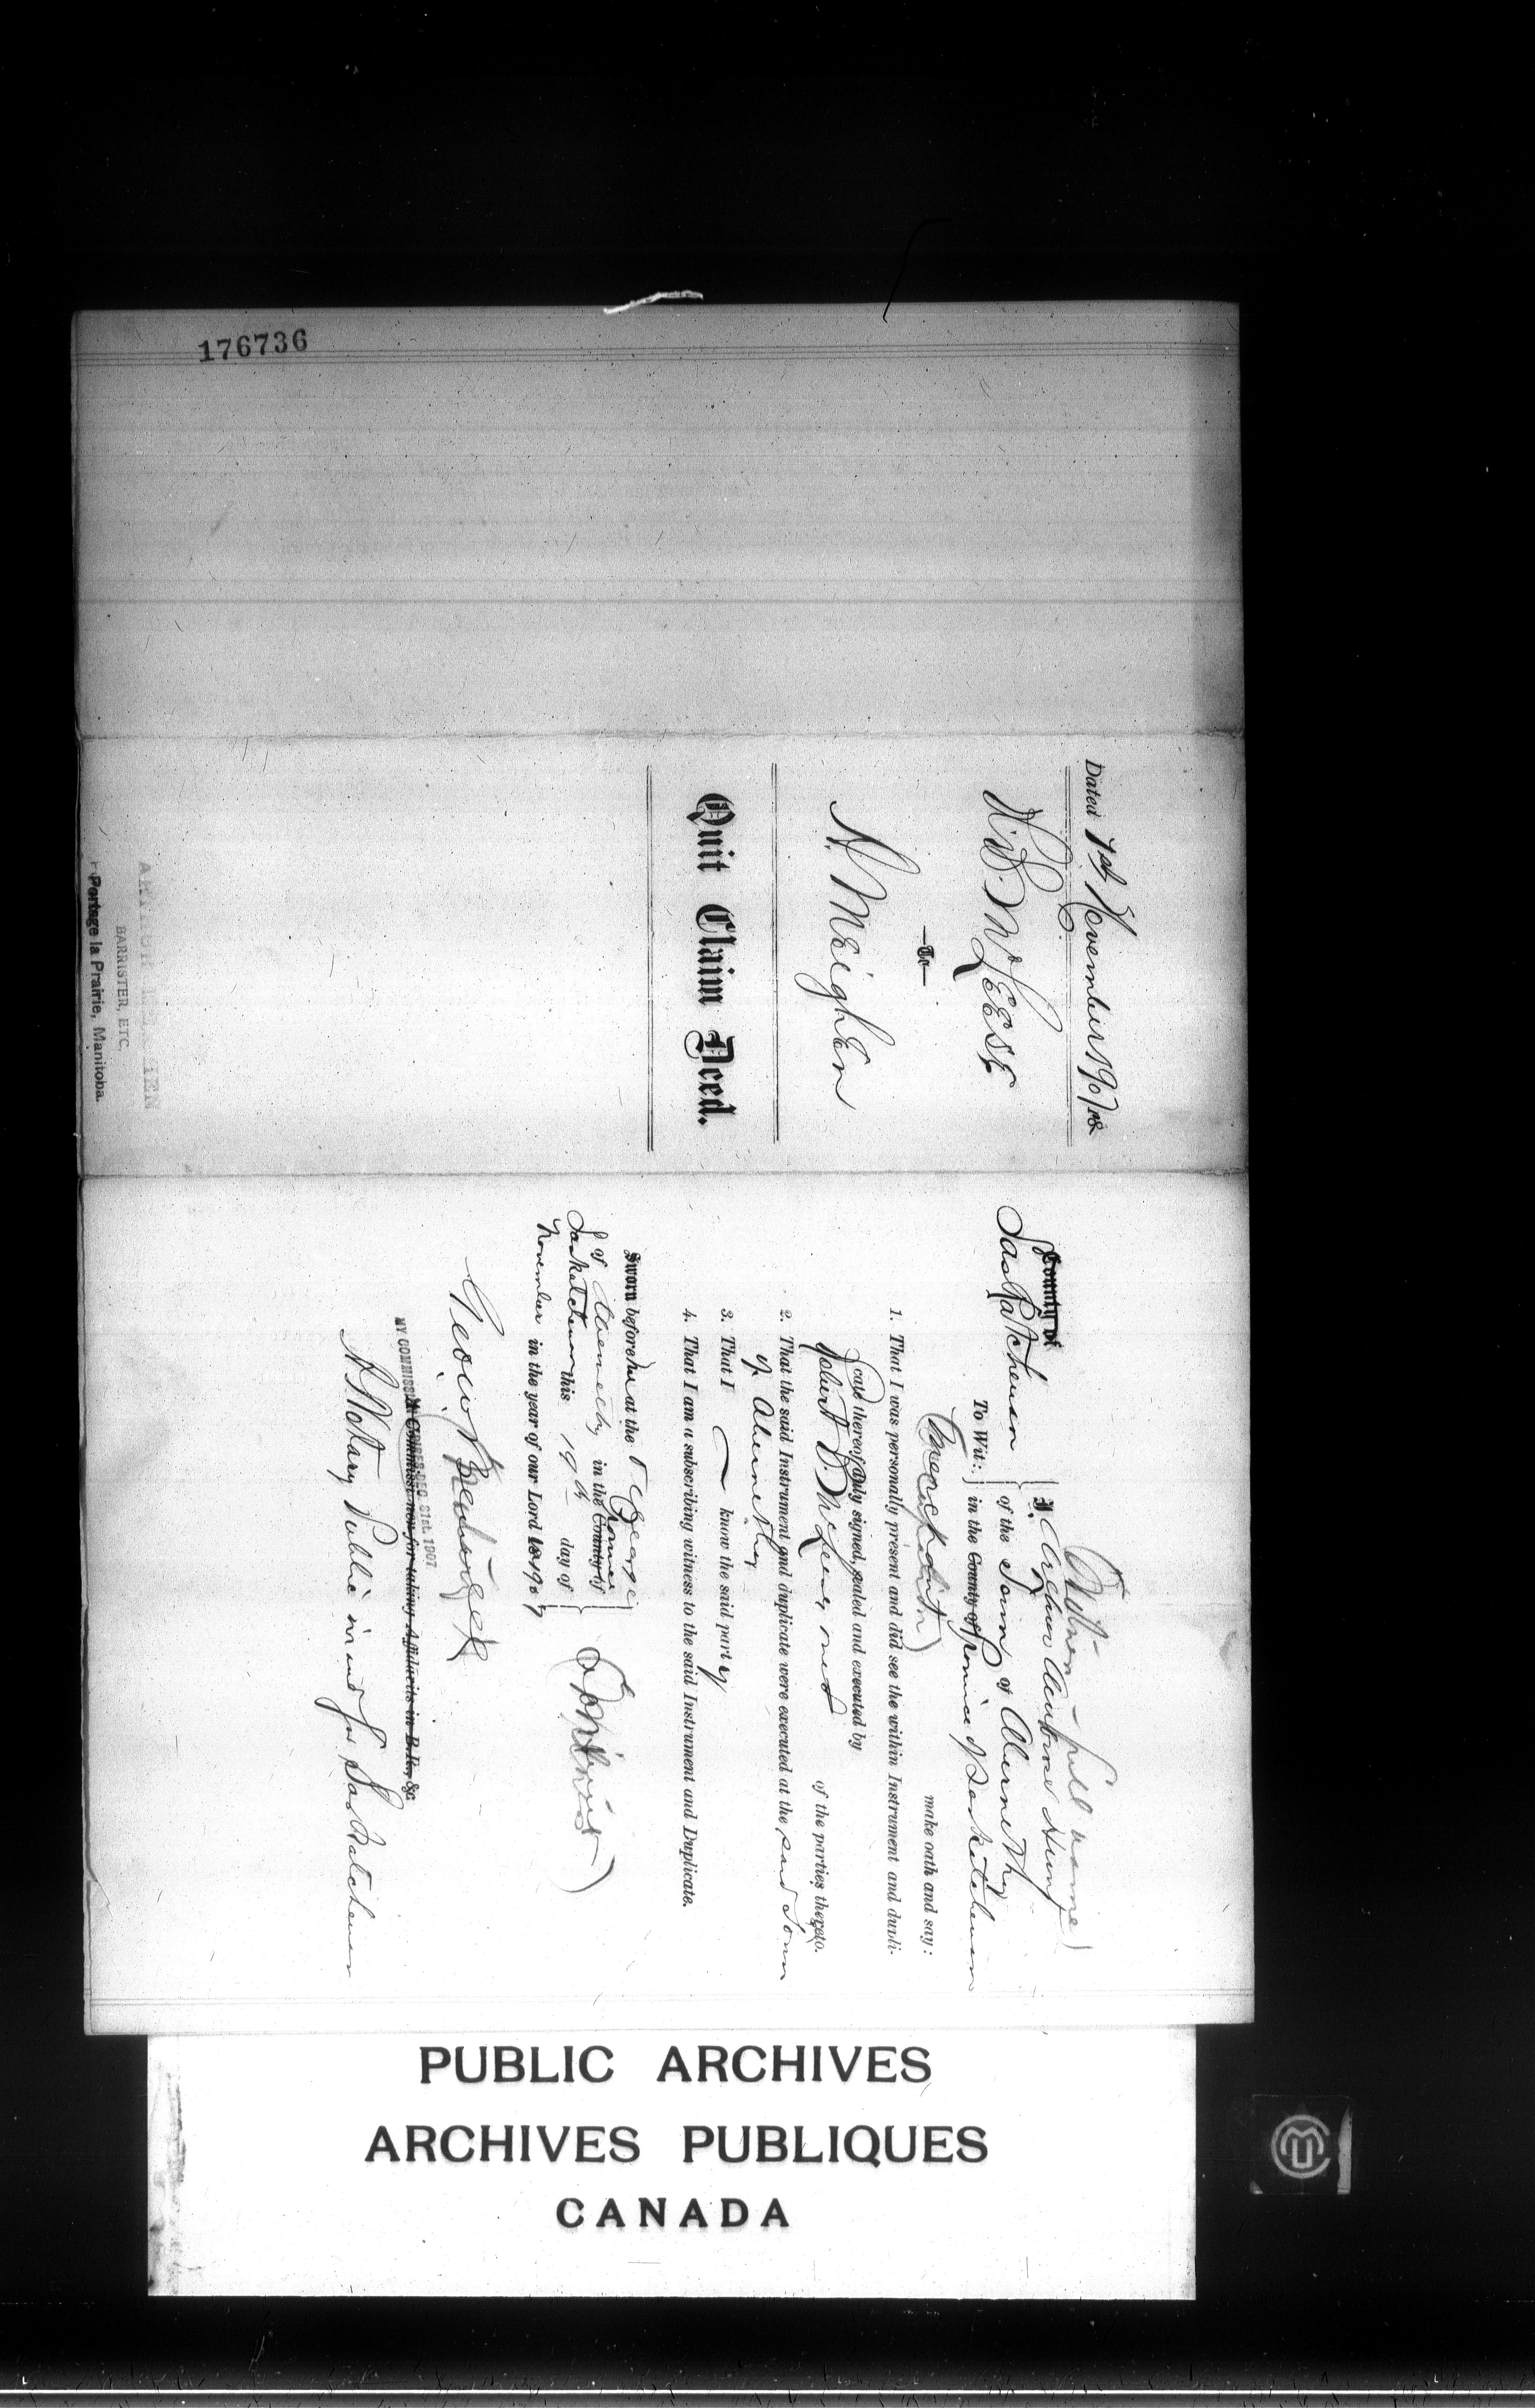 176736
Dated 1st November 1907 18
R. D. McLEESE
—To—
A. MEighEn
Quit Claim Deed.
BARRISTER, ETC.
Portage la Prairie, Manitoba.
County of
Saskatchewan
To Wit:
(Witness full name)
I,
of the Town of Abernethy
in the County of Province of Saskatchewan
(occupation) make oath and say:
1. That I was personally present and did see the within Instrument and dupli-
cate thereof duly signed, sealed and executed by
Robert D. McLeese, one of the parties thereto.
2. That the said Instrument and duplicate were executed at the said Town
of Abernethy
3. That I know the said party
4. That I am a subscribing witness to the said Instrument and Duplicate.
Sworn before me at the Village
of Abernethy in the County of Province
Saskatchewan this 19th day of
November in the year of our Lord 18 1907
MY COMMISSION EXPIRES DEC. 31st. 1907
A Commissioner for taking Affidavits in B.R., &c.
A Notary Public in and for Saskatchewan
PUBLIC ARCHIVES
ARCHIVES PUBLIQUES
CANADA